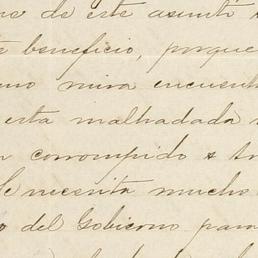 de este asunto
beneficio, porque
mira encuent
esta malhadada
corrompido
Se necesita mucho
del Gobierno para